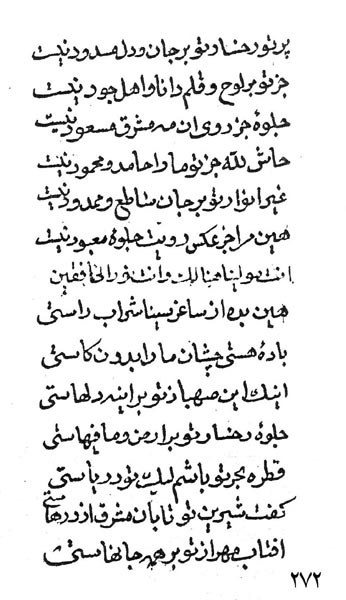 پرتو رخسار تو بر جان و دل مسدود نیست
جز تو بر لوح و قلم دانا و اهل جود نیست
جلوهٔ جز روی ان مه مشرق مسعود نیست
حاش لله جز تو ما را حامد و محمود نیست
غیر انوار تو بر جان ساطع و ممدود نیست
هین مرا جز عکس رویت جلوهٔ معبود نیست
انت مولینا هنالک وانت نور الخافقین
هین بده از ساغر سینا شراب راستی
بادهٔ هستی چشان ما را بدون کاستی
اینک این صهبا ز تو بر اینه دلهاستی
جلوهٔ رخسار تو بر ارض و ما فیهاستی
قطره بحر تو باشم لیک تو دریاستی
گفت شیرین تو تابان مشرق از درهاستی
افتاب مهر از تو بر همه جانهاستی
۲۷۲